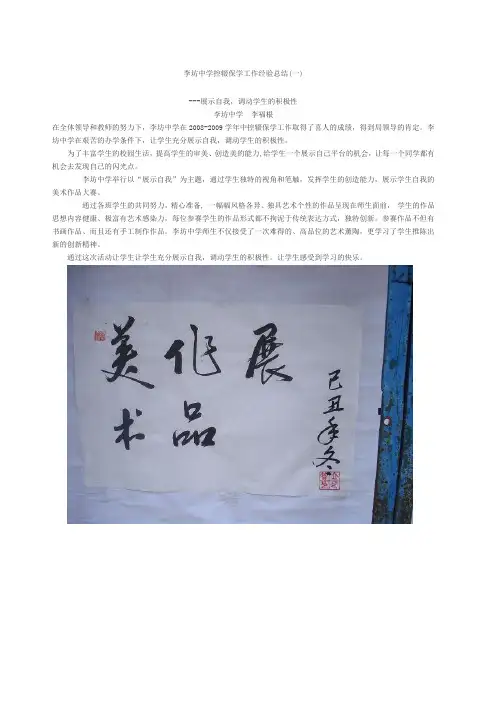 李坊中学控辍保学工作经验总结(一)
---展示自我，调动学生的积极性
李坊中学 李福根
在全体领导和教师的努力下，李坊中学在2008-2009学年中控辍保学工作取得了喜人的成绩，得到局领导的肯定。李
坊中学在艰苦的办学条件下，让学生充分展示自我，调动学生的积极性。
为了丰富学生的校园生活，提高学生的审美、创造美的能力，给学生一个展示自己平台的机会，让每一个同学都有
机会去发现自己的闪光点。
李坊中学举行以“展示自我”为主题，通过学生独特的视角和笔触，发挥学生的创造能力，展示学生自我的
美术作品大赛。
通过各班学生的共同努力，精心准备，一幅幅风格各异、独具艺术个性的作品呈现在师生面前， 学生的作品
思想内容健康、极富有艺术感染力。每位参赛学生的作品形式都不拘泥于传统表达方式，独特创新。参赛作品不但有
书画作品、而且还有手工制作作品。李坊中学师生不仅接受了一次难得的、高品位的艺术熏陶，更学习了学生推陈出
新的创新精神。
通过这次活动让学生让学生充分展示自我，调动学生的积极性。让学生感受到学习的快乐。
美作展
术品
己丑年冬